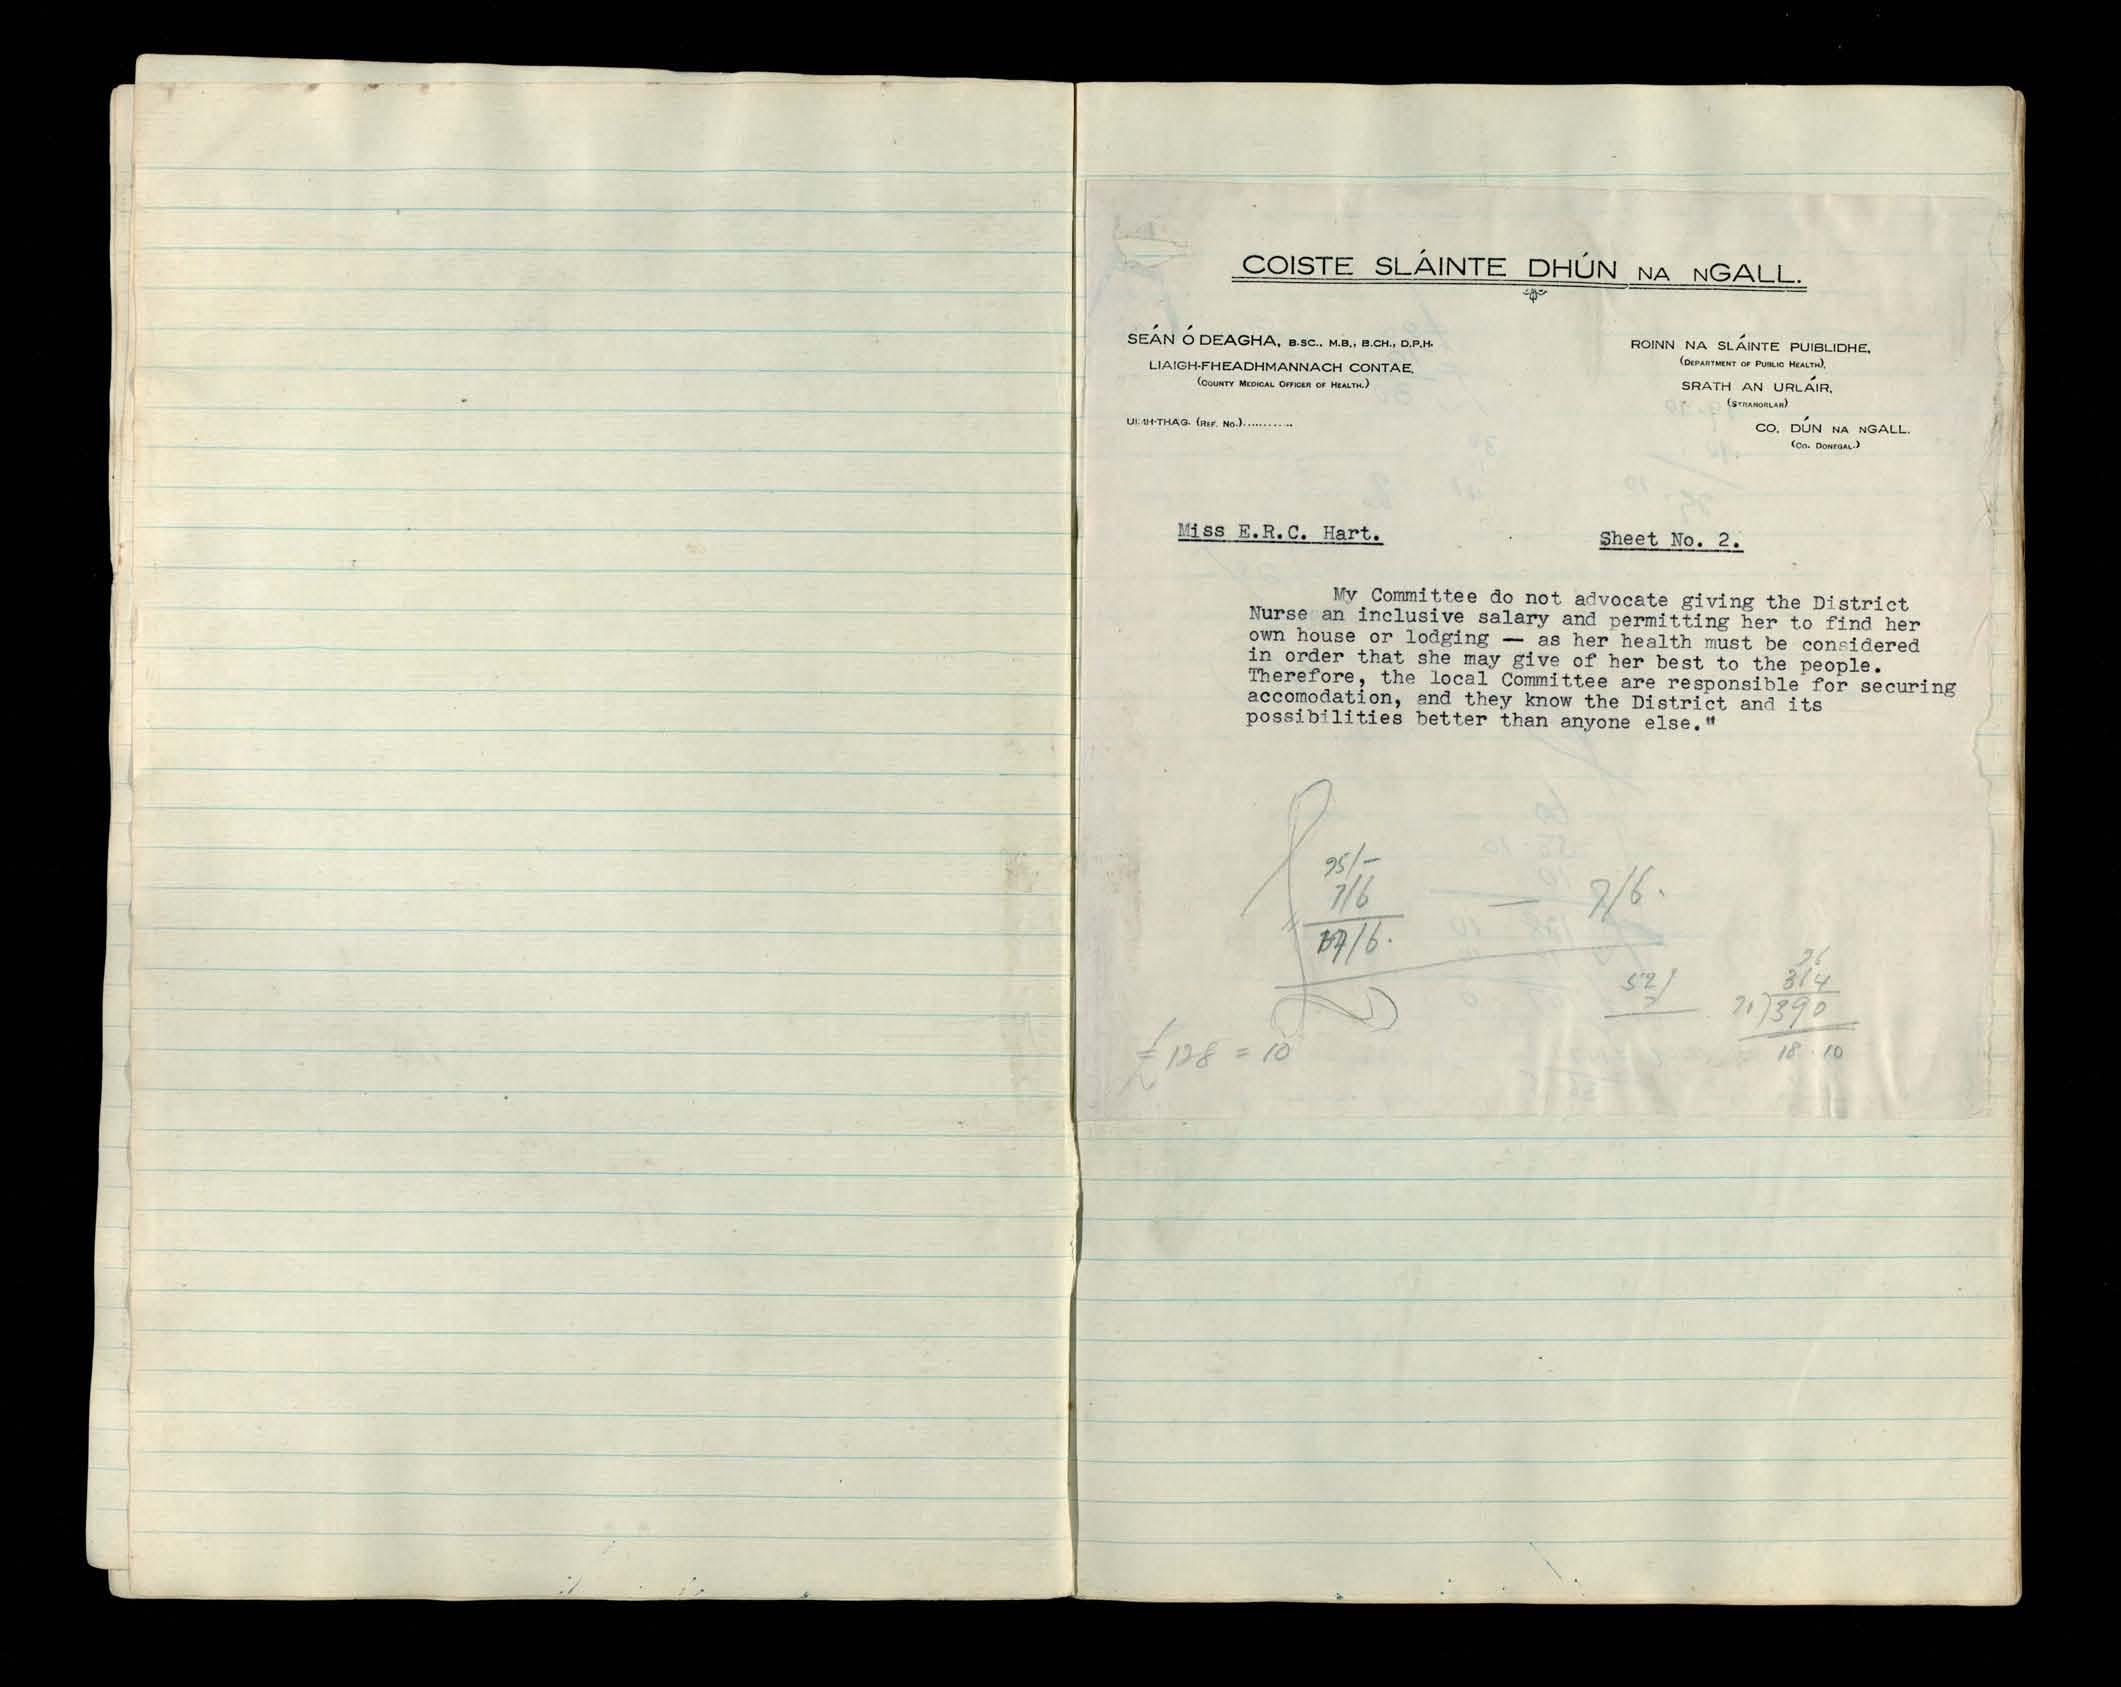 COISTE SLÁINTE DHÚN NA NGALL.
SEÁN Ó DEAGHA, B.SC., M.B., B.CH., D.P.H.
LIAIGH-FHEADHMANNACH CONTAE.
(COUNTY MEDICAL OFFICER OF HEALTH.)
UIMH-THAG. (REF. NO.)...........
ROINN NA SLÁINTE PUIBLIDHE,
(DEPARTMENT OF PUBLIC HEALTH),
SRATH AN URLÁIR,
(STRANORLAR)
CO. DÚN NA NGALL.
(CO. DONEGAL.)
Miss E.R.C. Hart. Sheet No. 2.
My Committee do not advocate giving the District
Nurse an inclusive salary and permitting her to find her
own house or lodging — as her health must be considered
in order that she may give of her best to the people.
Therefore, the local Committee are responsible for securing
accomodation, and they know the District and its
possibilities better than anyone else."
95/-
7/6
7/6.
314
390
18.10
128 = 10